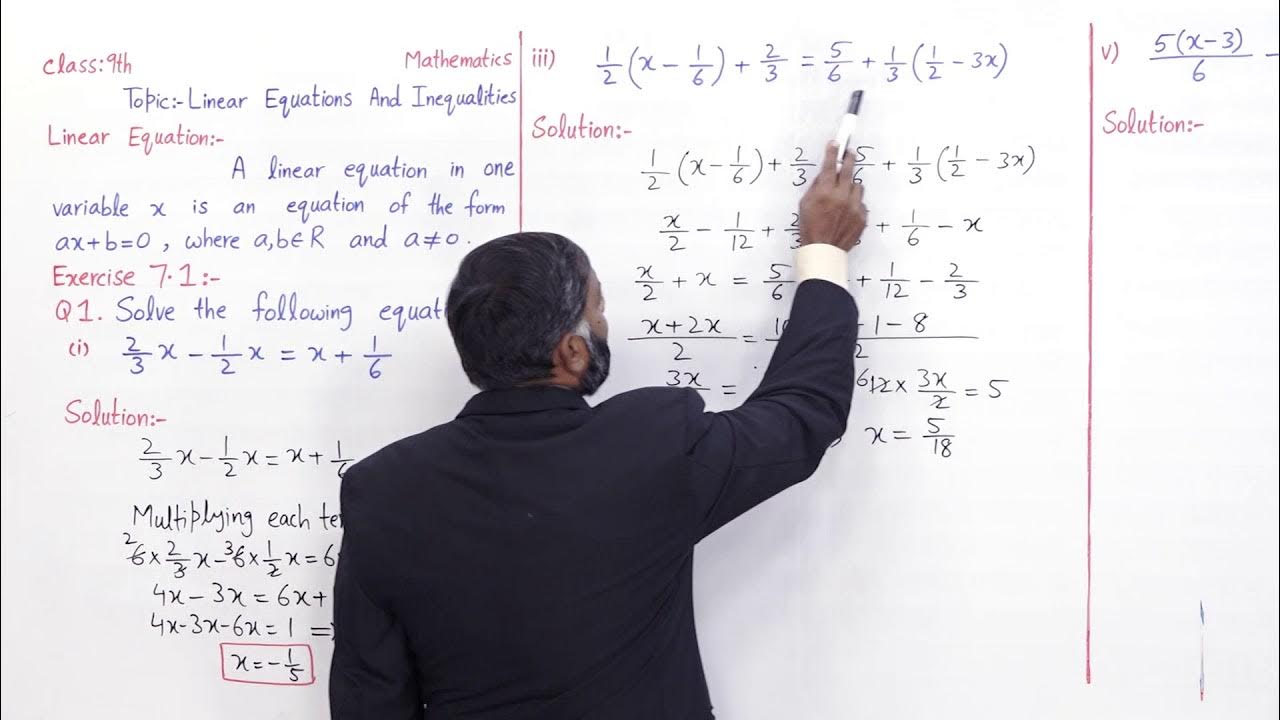 class:9th Mathematics
Topic:- Linear Equations And Inequalities
Linear Equation:-
A linear equation in one
variable x is an equation of the form
ax+b=0 , where a,b∈R and a≠0.
Exercise 7.1:-
Q1. Solve the following
(i) 2/3 x - 1/2 x = x + 1/6
Solution:-
2/3 x - 1/2 x = x + 1/6
Multiplying each
6 × 2/3 x - 6 × 1/2 x = 6
4x - 3x = 6x +
4x-3x-6x = 1 ⇒
x = -1/5
iii) 1/2 (x - 1/6) + 2/3 = 5/6 + 1/3 (1/2 - 3x)
Solution:-
1/2 (x - 1/6) + 2/3 5/6 + 1/3 (1/2 - 3x)
x/2 - 1/12 + 2/3 + 1/6 - x
x/2 + x = 5/6 + 1/12 - 2/3
x+2x/2 = - 1 - 8
3x = 12 × 3x/2 = 5
x = 5/18
v) 5(x-3)/6 -
Solution:-